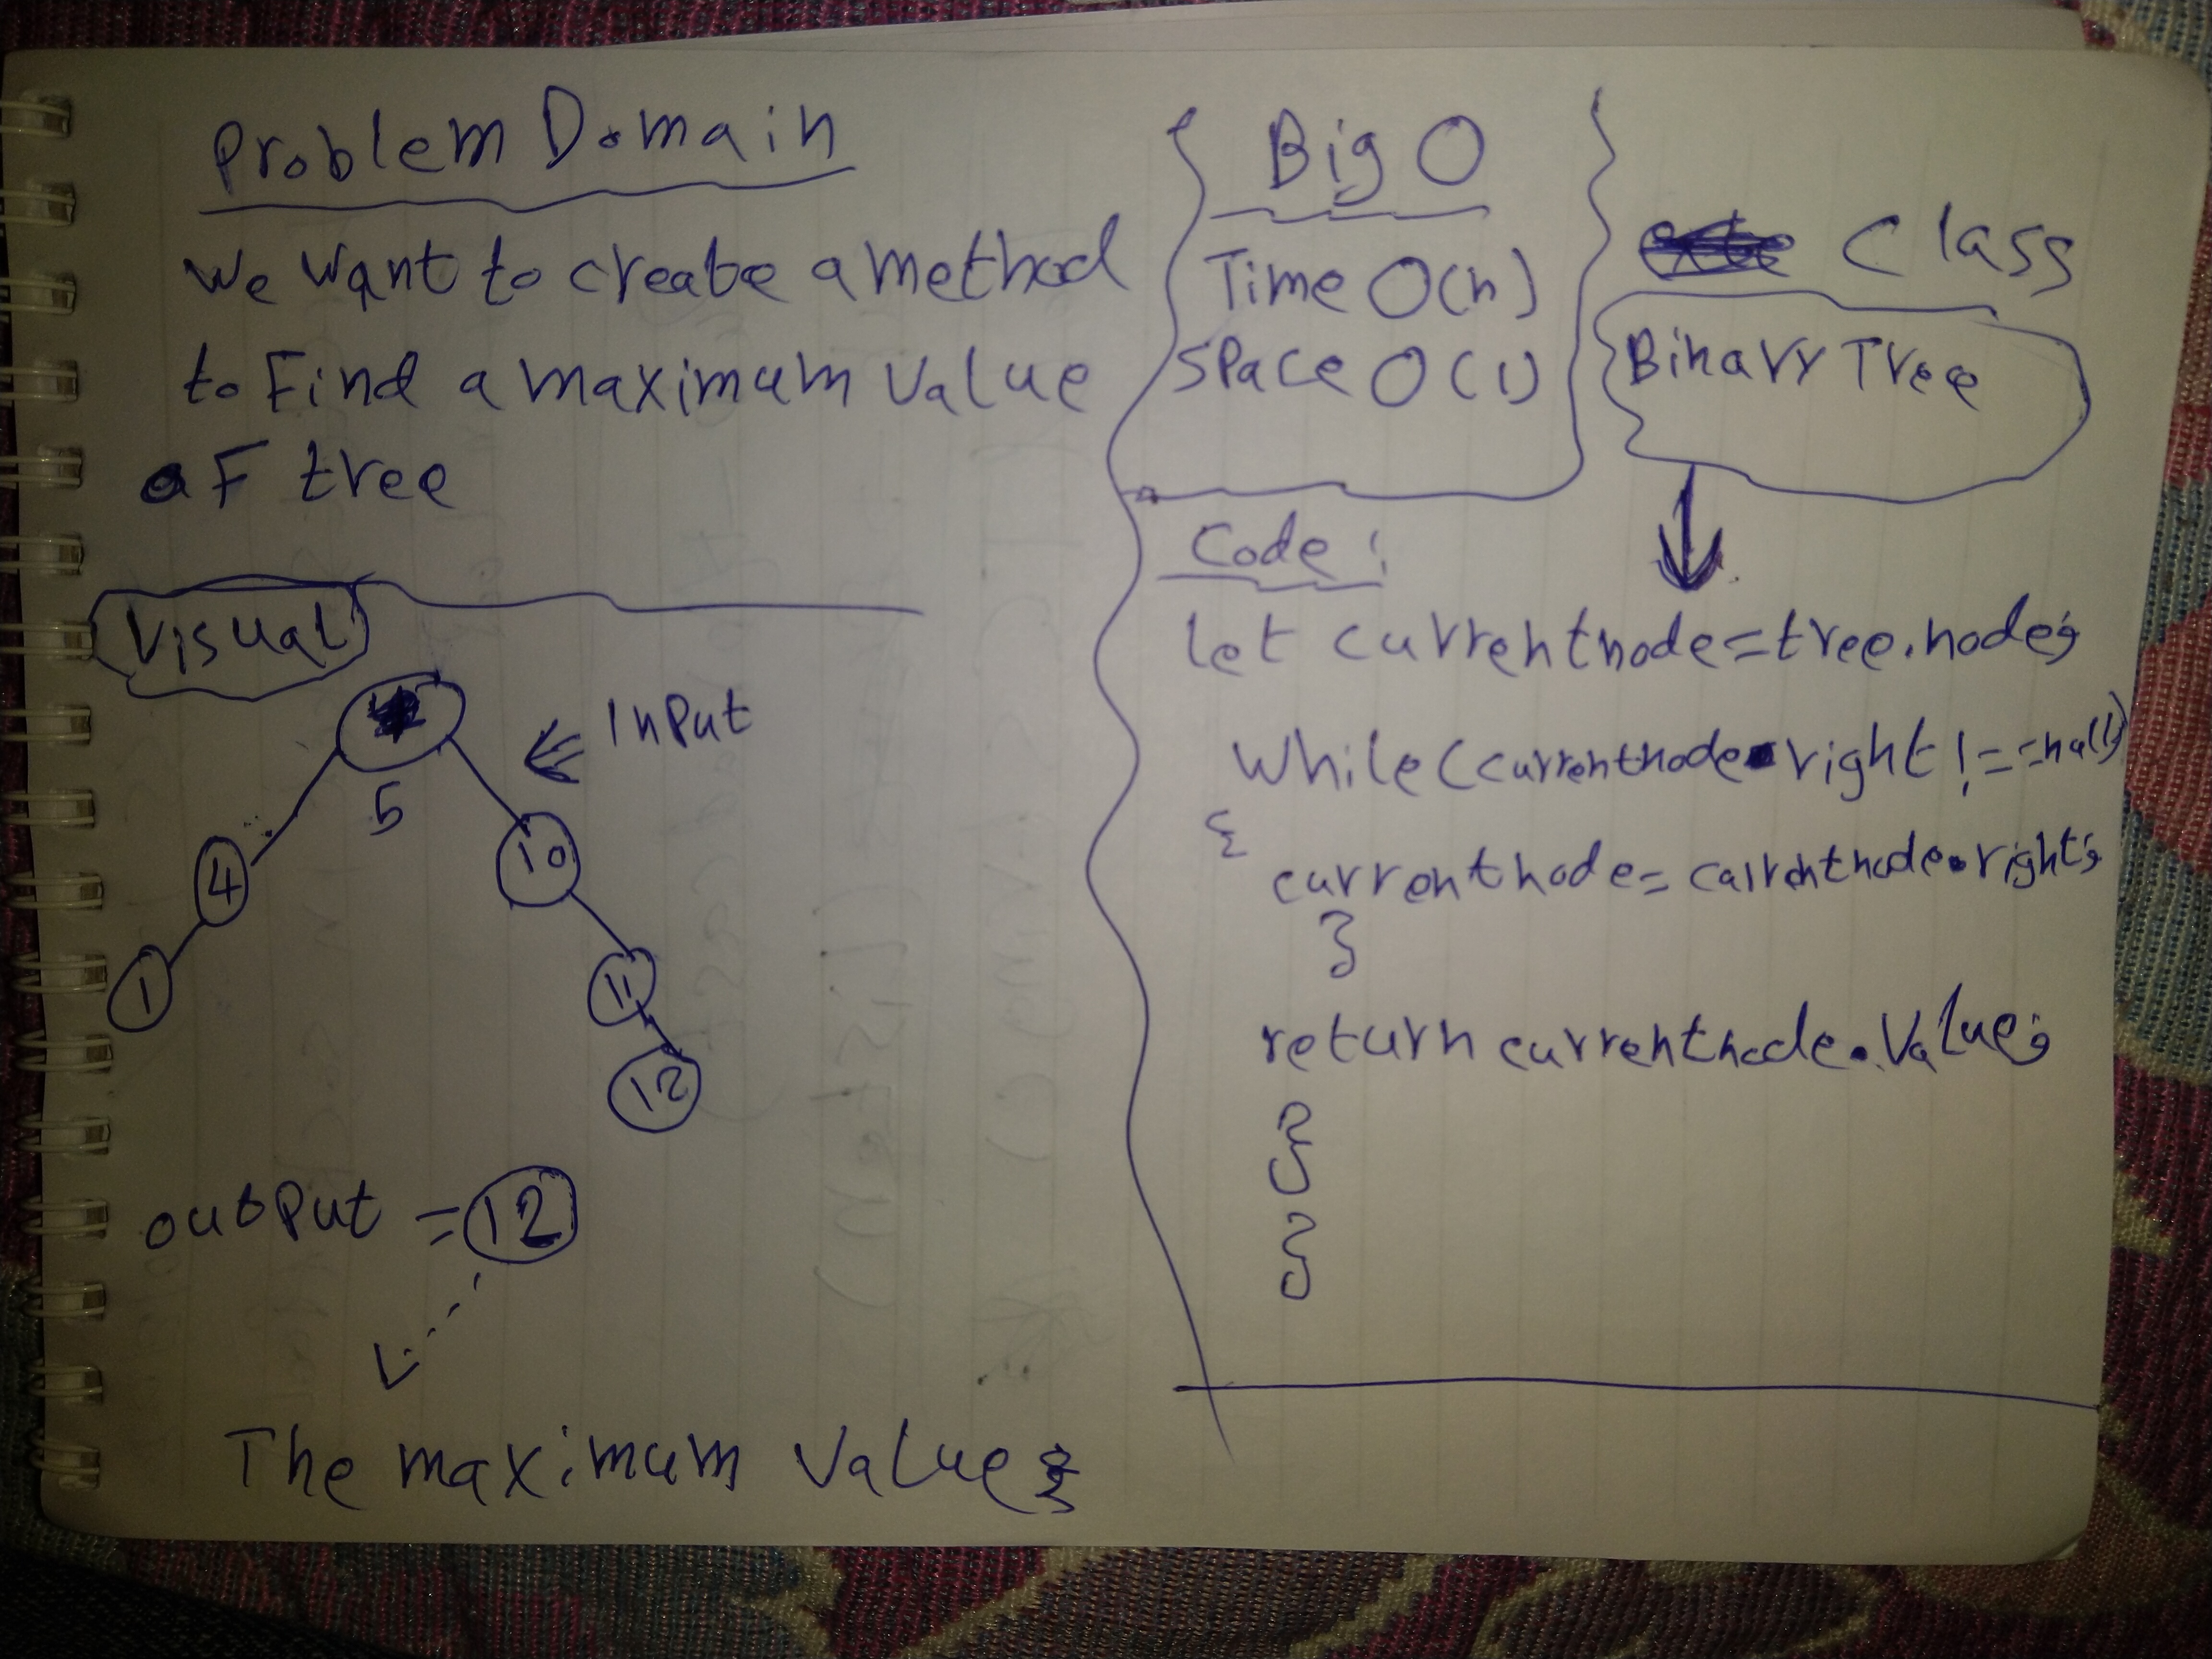 Problem Domain
We want to create a method
to Find a maximum Value
of tree
Visual
Input
5
4
10
1
11
12
output = 12
The maximum Value
Big O
Time O(n)
Space O(1)
Class
Binary Tree
Code:
let currentnode=tree.node;
While(currentnode.right!==null)
{
currentnode=currentnode.right;
}
return currentnode.Value;